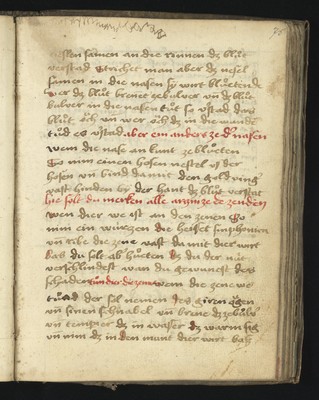 samen an die
verstad man aber dz nesel
samen in die nasen sy wirt blůetende
wer dz blůt brenet ze bulver vn dz
bulver in die nasen tůt so vstad das
blůt öch vn wer öch dz in die wunde
tůd es vstad aber ein anders ze der nasen
wem die nase an laut zeblůeten
So nim einen hosen nestel vs der
hosen vn bind danne den gold vinger
vast hinden by der hant dz blůt verstat
hie solt du merken alle arzin ze de zenden
wen dier we ist an den zenen So
nim ein wurtzen die heisset simphonien
vn ribe die zene vast da mit dier wirt
bas du solt ab hůeten dz du der nüt
verschlindest wan du gewunest des
schaden wen die zene we
tůnd der sol nemen des giren ögen
vn sinen schnabel vn brene dz ze bulver
vn temperer dz in wasser dz warm sig
vn nim dz in den munt dier wirt bas